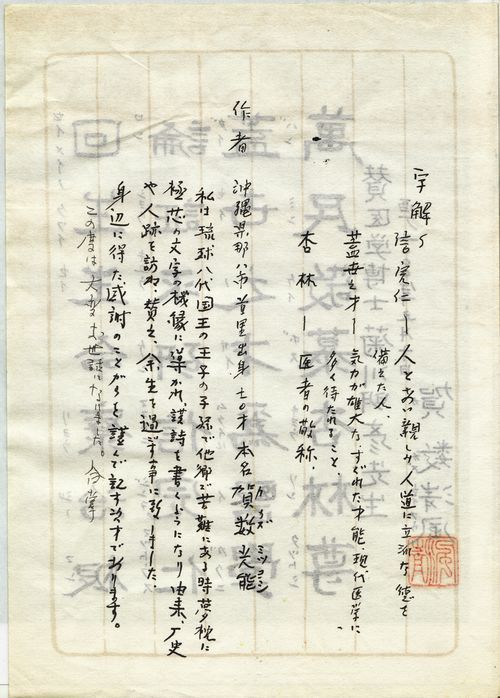 字解
信寛仁ー人とあい親しみ人道に立派な徳を
備えた人、
蓋世之才ー気力が雄大な、すぐれた才能現代医学に
多く待たれること、
杏林ー医者の敬称、
作者 沖縄県那八市首里出身 七〇才 本名 賀数 光能
カカズ ミツヨシ
私は琉球八代国王の王子の子孫で他郷で苦難にある時夢枕に
極芯の文字の機縁に導かれ、漢詩を書くようになり由来、歴史
や人跡を訪ね、賛え、余生を過ごす事に致しました、
身辺に得た感謝のことがらを謹んで記す次第であります。
この度は大変お世話になりました。合掌